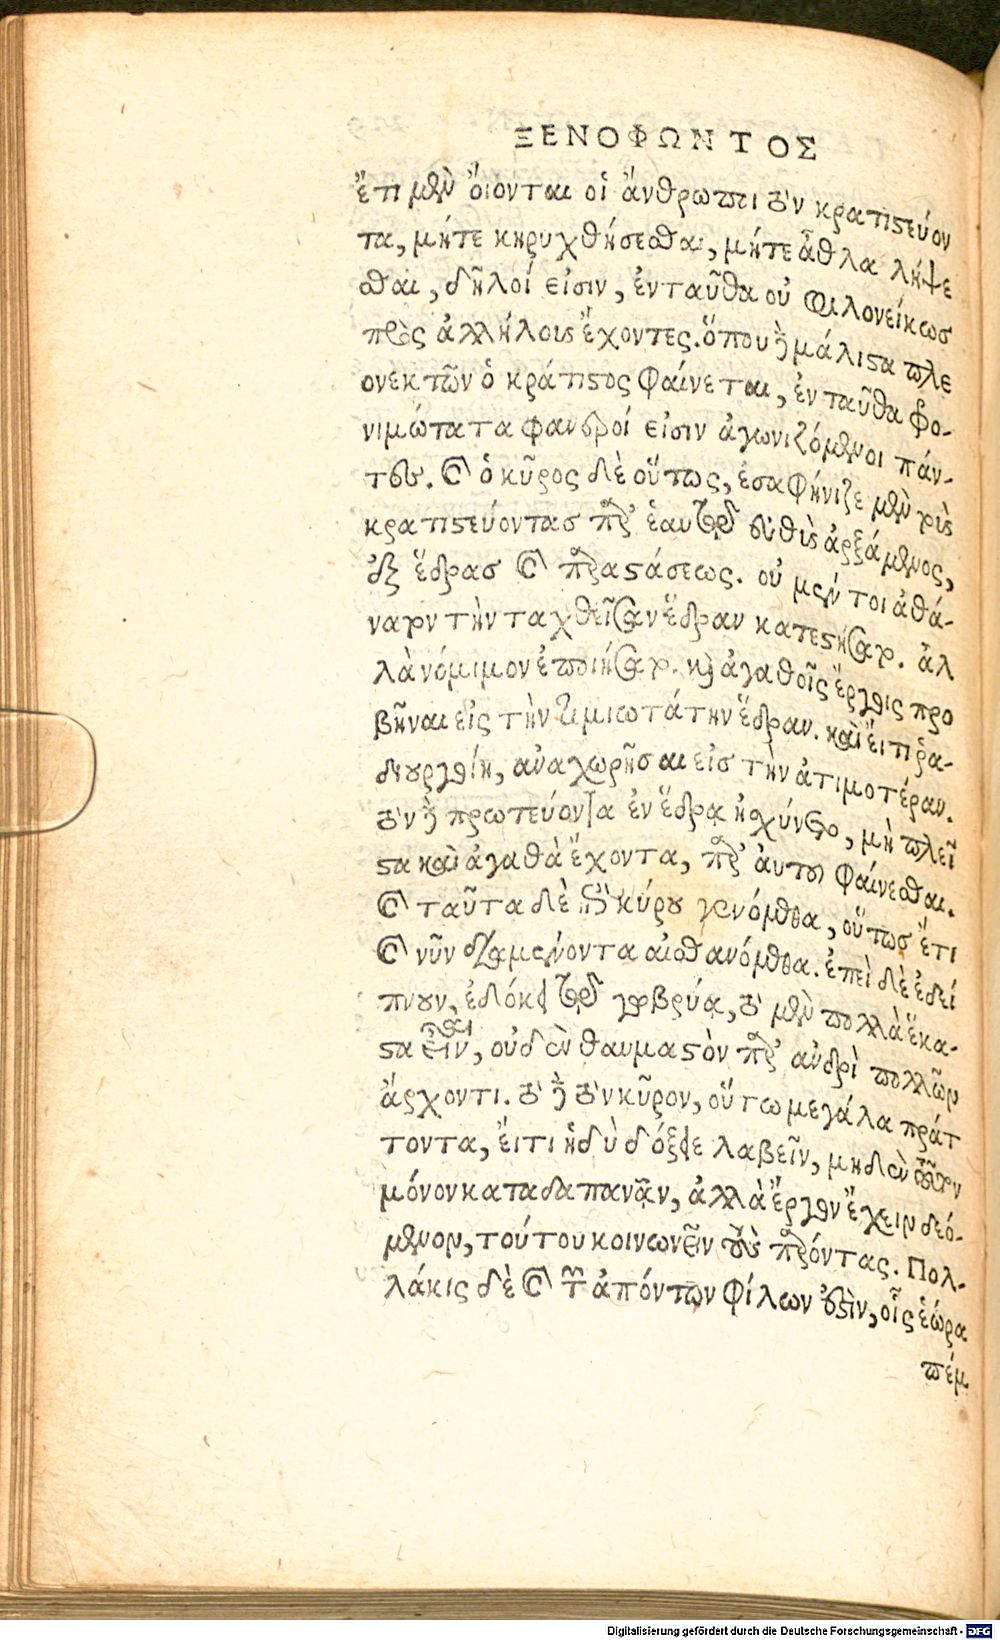 ΞΕΝΟΦΩΝΤΟΣ
ἔτι μὲν ὄιονται οἱ ἄνθρωποι τὸν κρατιστεύον
τα, μήτε κηρυχθήσεσθαι, μήτε ἆθλα λήψε
σθαι, δῆλοί εἰσιν, ἐνταῦθα οὐ φιλονείκωσ
πρὸς ἀλλήλους ἔχοντες. ὅπου δὲ μάλιστα πλε
ονεκτῶν ὁ κράτιστος φαίνεται, ἐνταῦθα φθο-
νιμώτατα φανεροί εἰσιν ἀγωνιζόμενοι πάν-
τες. καὶ ὁ κῦρος δὲ οὕτως, ἐσαφήνιζε μὲν τοὺς
κρατιστεύοντασ παρ' ἑαυτῷ εὐθὺς ἀρξάμενος,
ἐξ ἕδρασ καὶ παραστάσεως. οὐ μέντοι ἀθά-
νατον τὴν ταχθεῖσαν ἕδραν κατεστήσατο. ἀλ
λὰ νόμιμον ἐποιήσατο. καὶ ἀγαθοῖς ἔργοις προ
βῆναι εἰς τὴν τιμιωτάτην ἕδραν. καὶ ἔι τις ῥα-
διουργοίη, ἀναχωρῆσαι εἰσ τὴν ἀτιμοτέραν.
τὸν δὲ πρωτεύοντα ἐν ἕδρᾳ ᾐσχύνετο, μὴ πλεῖ
στα καὶ ἀγαθὰ ἔχοντα, παρ' ἀυτοῦ φαίνεσθαι.
καὶ ταῦτα δὲ ἐπὶ κύρου γενόμενα, οὕτωσ ἔτι
καὶ νῦν διαμένοντα αἰσθανόμεθα. ἐπεὶ δὲ ἐδεί
πνουν, ἐδόκει τῷ γωβρύᾳ, τὸ μὲν πολλὰ ἕκα-
στα εἶναι, οὐδὲν θαυμαστὸν παρ' ἀνδρὶ πολλῶν
ἄρχοντι. τὸ δὲ τὸν κῦρον, οὕτω μεγάλα πράτ
τοντα, ἔιτι ἡδὺ δόξειε λαβεῖν, μηδὲν τούτων
μόνον καταδαπανᾶν, ἀλλὰ ἔργον ἔχειν δεό-
μενον, τούτου κοινωνεῖν τοὺς παρόντας. Πολ-
λάκις δὲ καὶ τῶν ἀπόντων φίλων ἔστιν, οἷς ἑώρα
πέμ
Digitalisierung gefördert durch die Deutsche Forschungsgemeinschaft - DFG